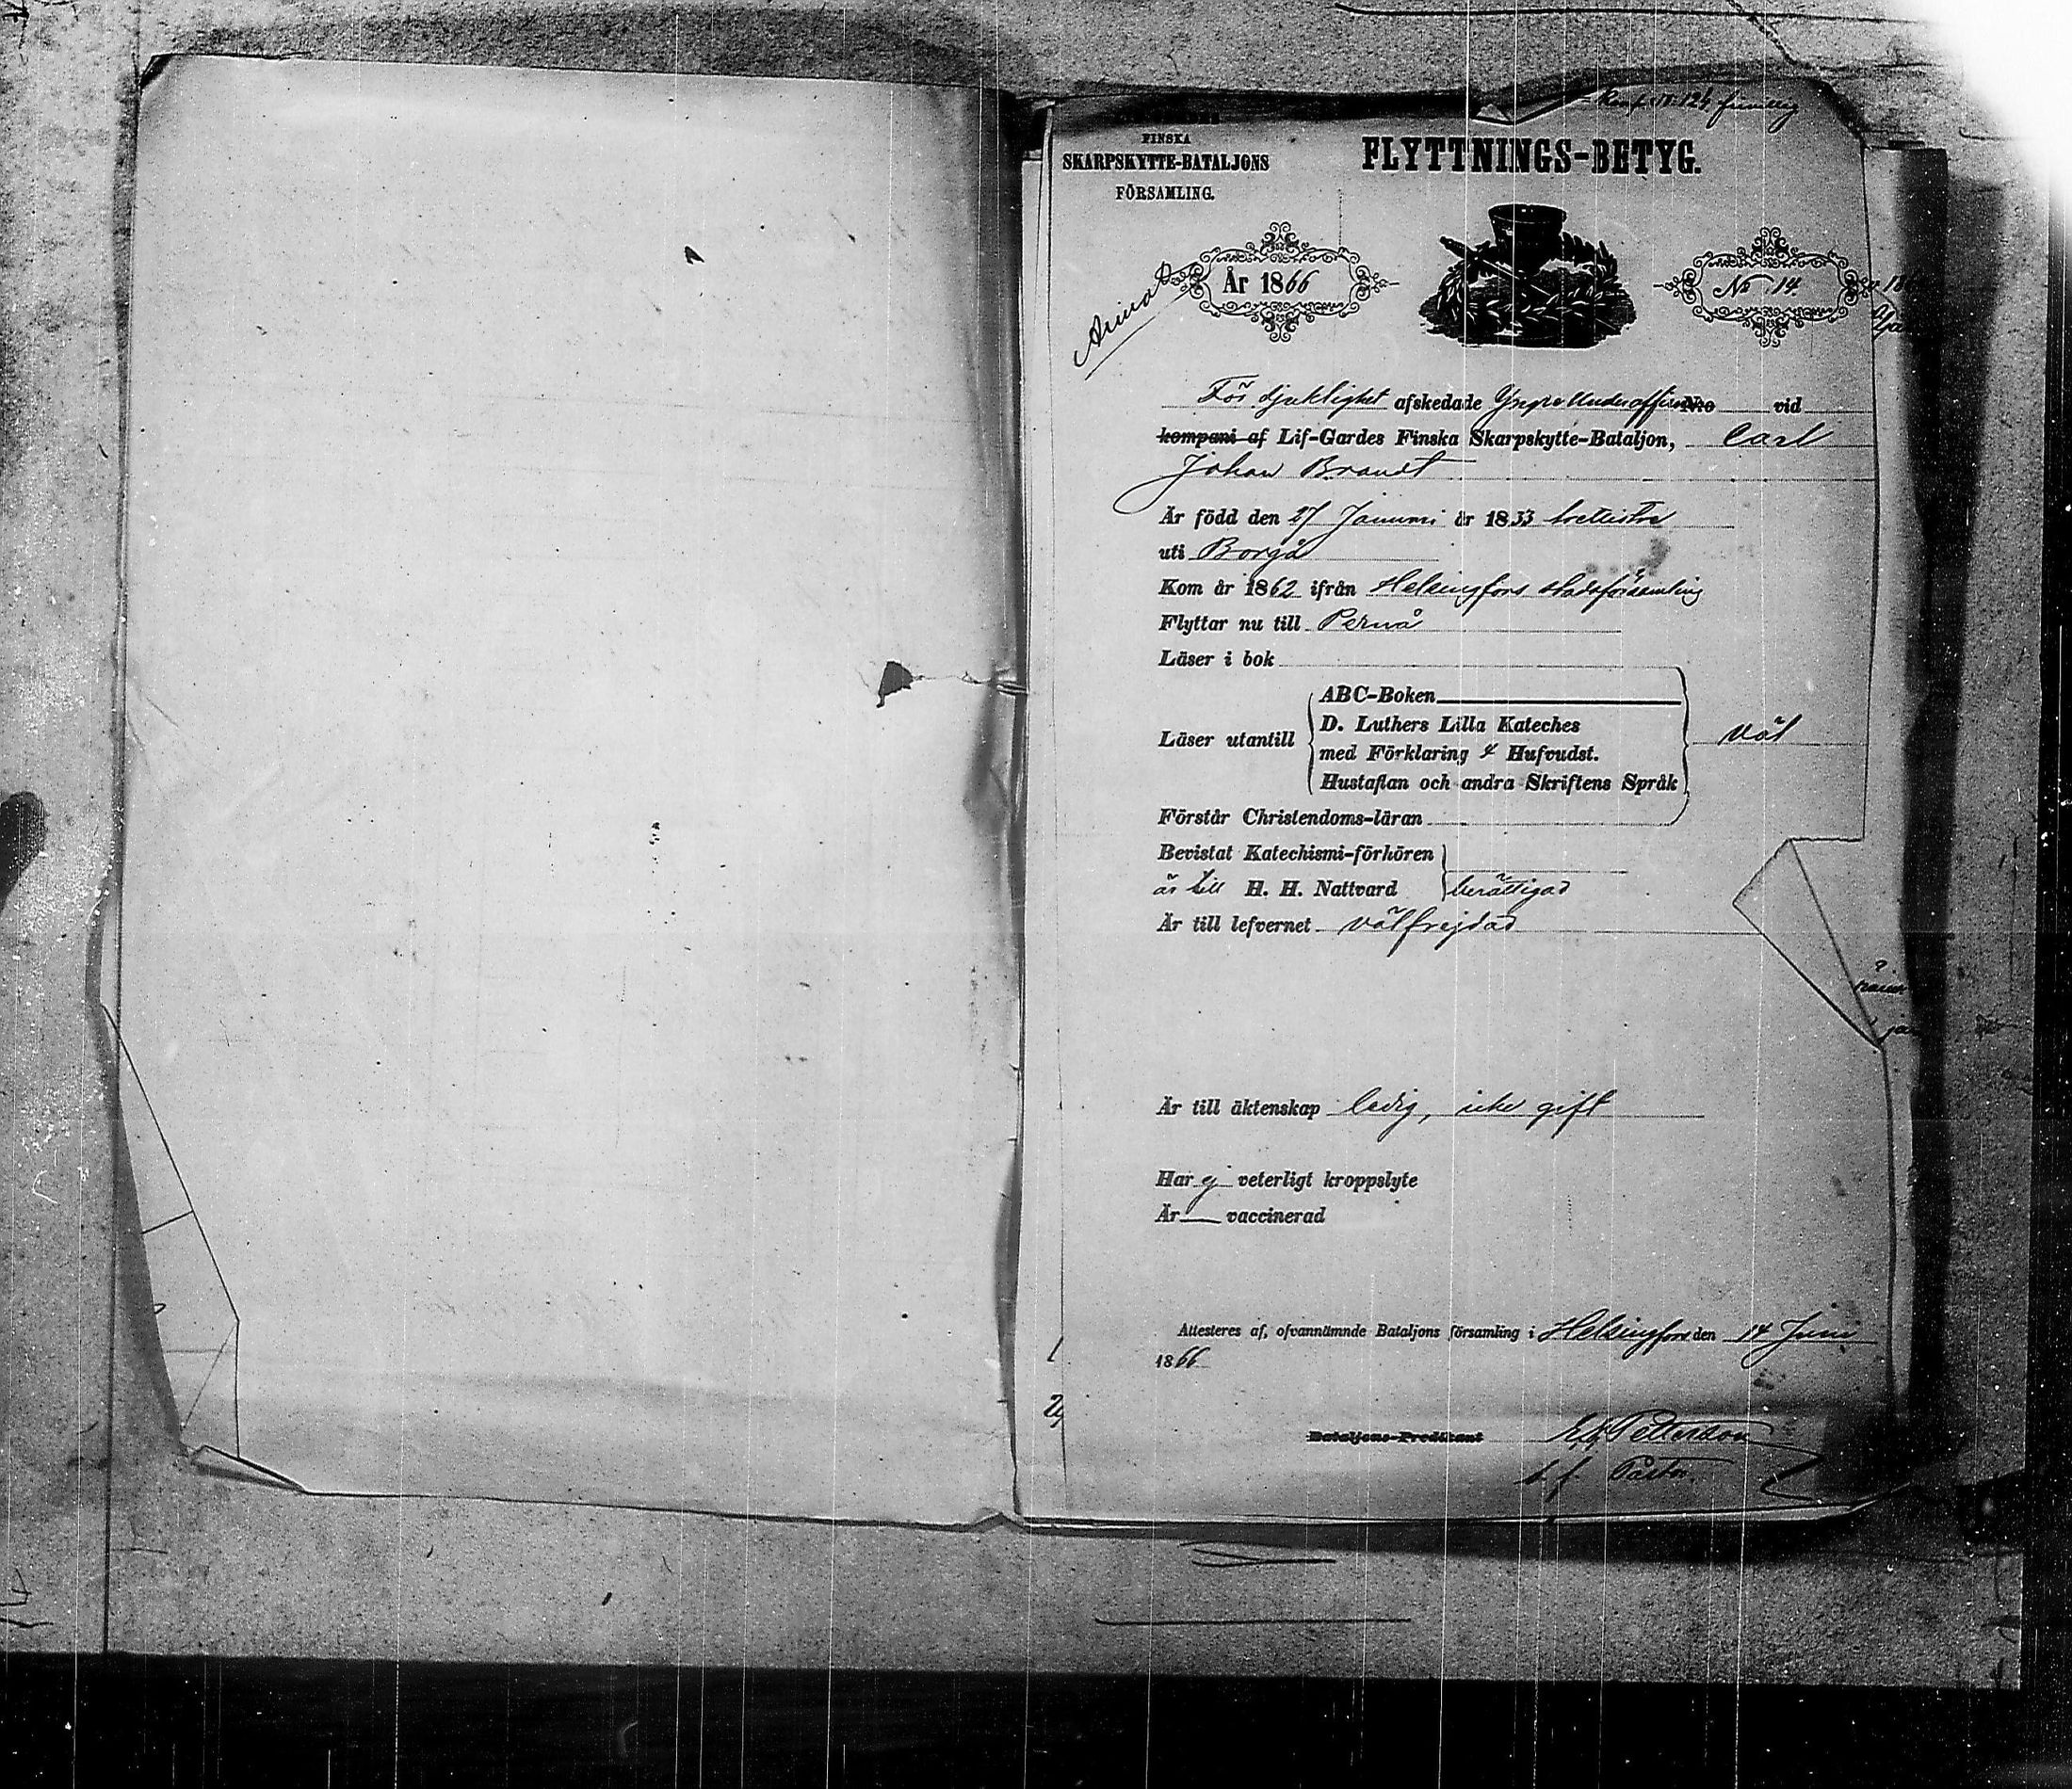 FINSKA
SKARPSKYTTE-BATALJONS
FÖRSAMLING.
FLYTTNINGS-BETYG.
År 1866
No 14.
För sjuklighet afskedade Yngre Underofficer No vid
kompani af Lif-Gardes Finska Skarpskytte-Bataljon, Carl
Johan Brandt
Är född den 27 Januari år 1833 trettiotre
uti Borgå
Kom år 1862 ifrån Helsingfors stadsförsamling
Flyttar nu till Pernå
Läser i bok
Läser utantill
ABC-Boken
D. Luthers Lilla Kateches
med Förklaring 4 Hufvudst.
Hustaflan och andra Skriftens Språk
väl
Förstår Christendoms-läran
Bevistat Katechismi-förhören
är till H. H. Nattvard berättigad
Är till lefvernet välfrejdad
Är till äktenskap ledig, icke gift
Har ej veterligt kroppslyte
Är vaccinerad
Attesteres af, ofvannämnde Bataljons församling i Helsingfors den 14 Juni
1866
Bataljons-Predikant
Petterson
t. f. Pastor.